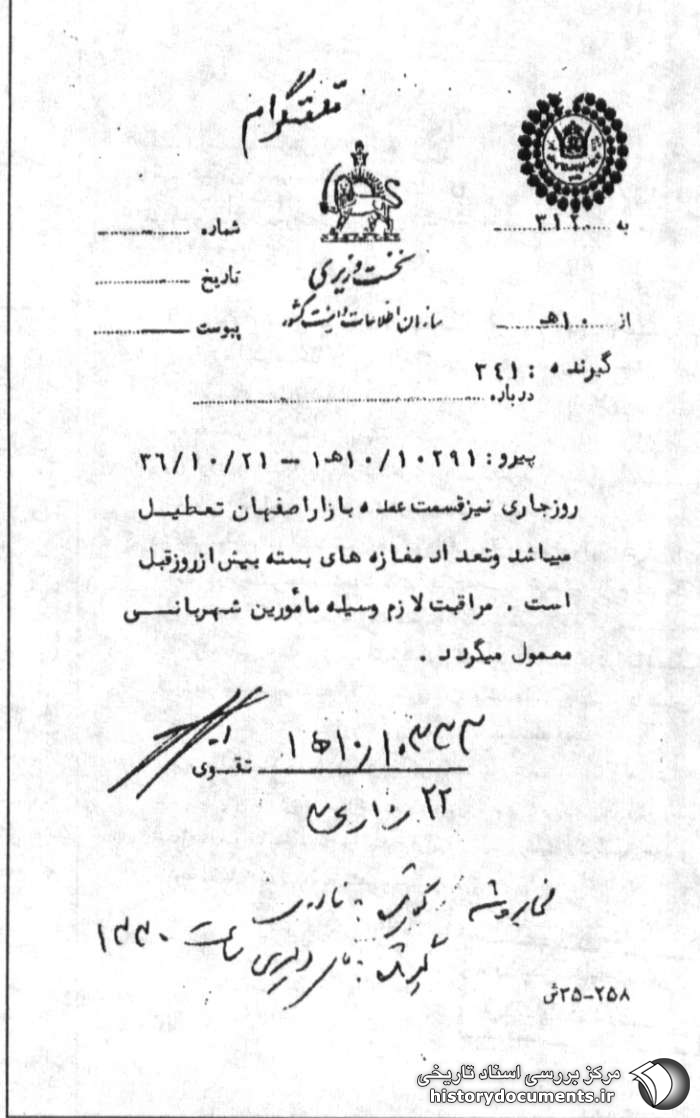 تلفنگرام
به ۳۱۲
شماره
نخست وزیری
تاریخ
سازمان اطلاعات و امنیت کشور
از ۱۰ هـ
پیوست
گیرنده : ۳۴۱
درباره
پیرو : ۱۰/۱۰۲۹۱هـ۱ -- ۳۶/۱۰/۲۱
روزجاری نیزقسمت عمده بازاراصفهان تعطیل
میباشد وتعداد مغازه های بسته بیش ازروزقبل
است . مراقبت لازم وسیله مأمورین شهربانی
معمول میگردد .
تقوی
۲۲
گوینده :
گیرنده : ساعت ۱۳۳۰
۲۵۸-۳۵ش
مرکز بررسی اسناد تاریخی
historydocuments.ir